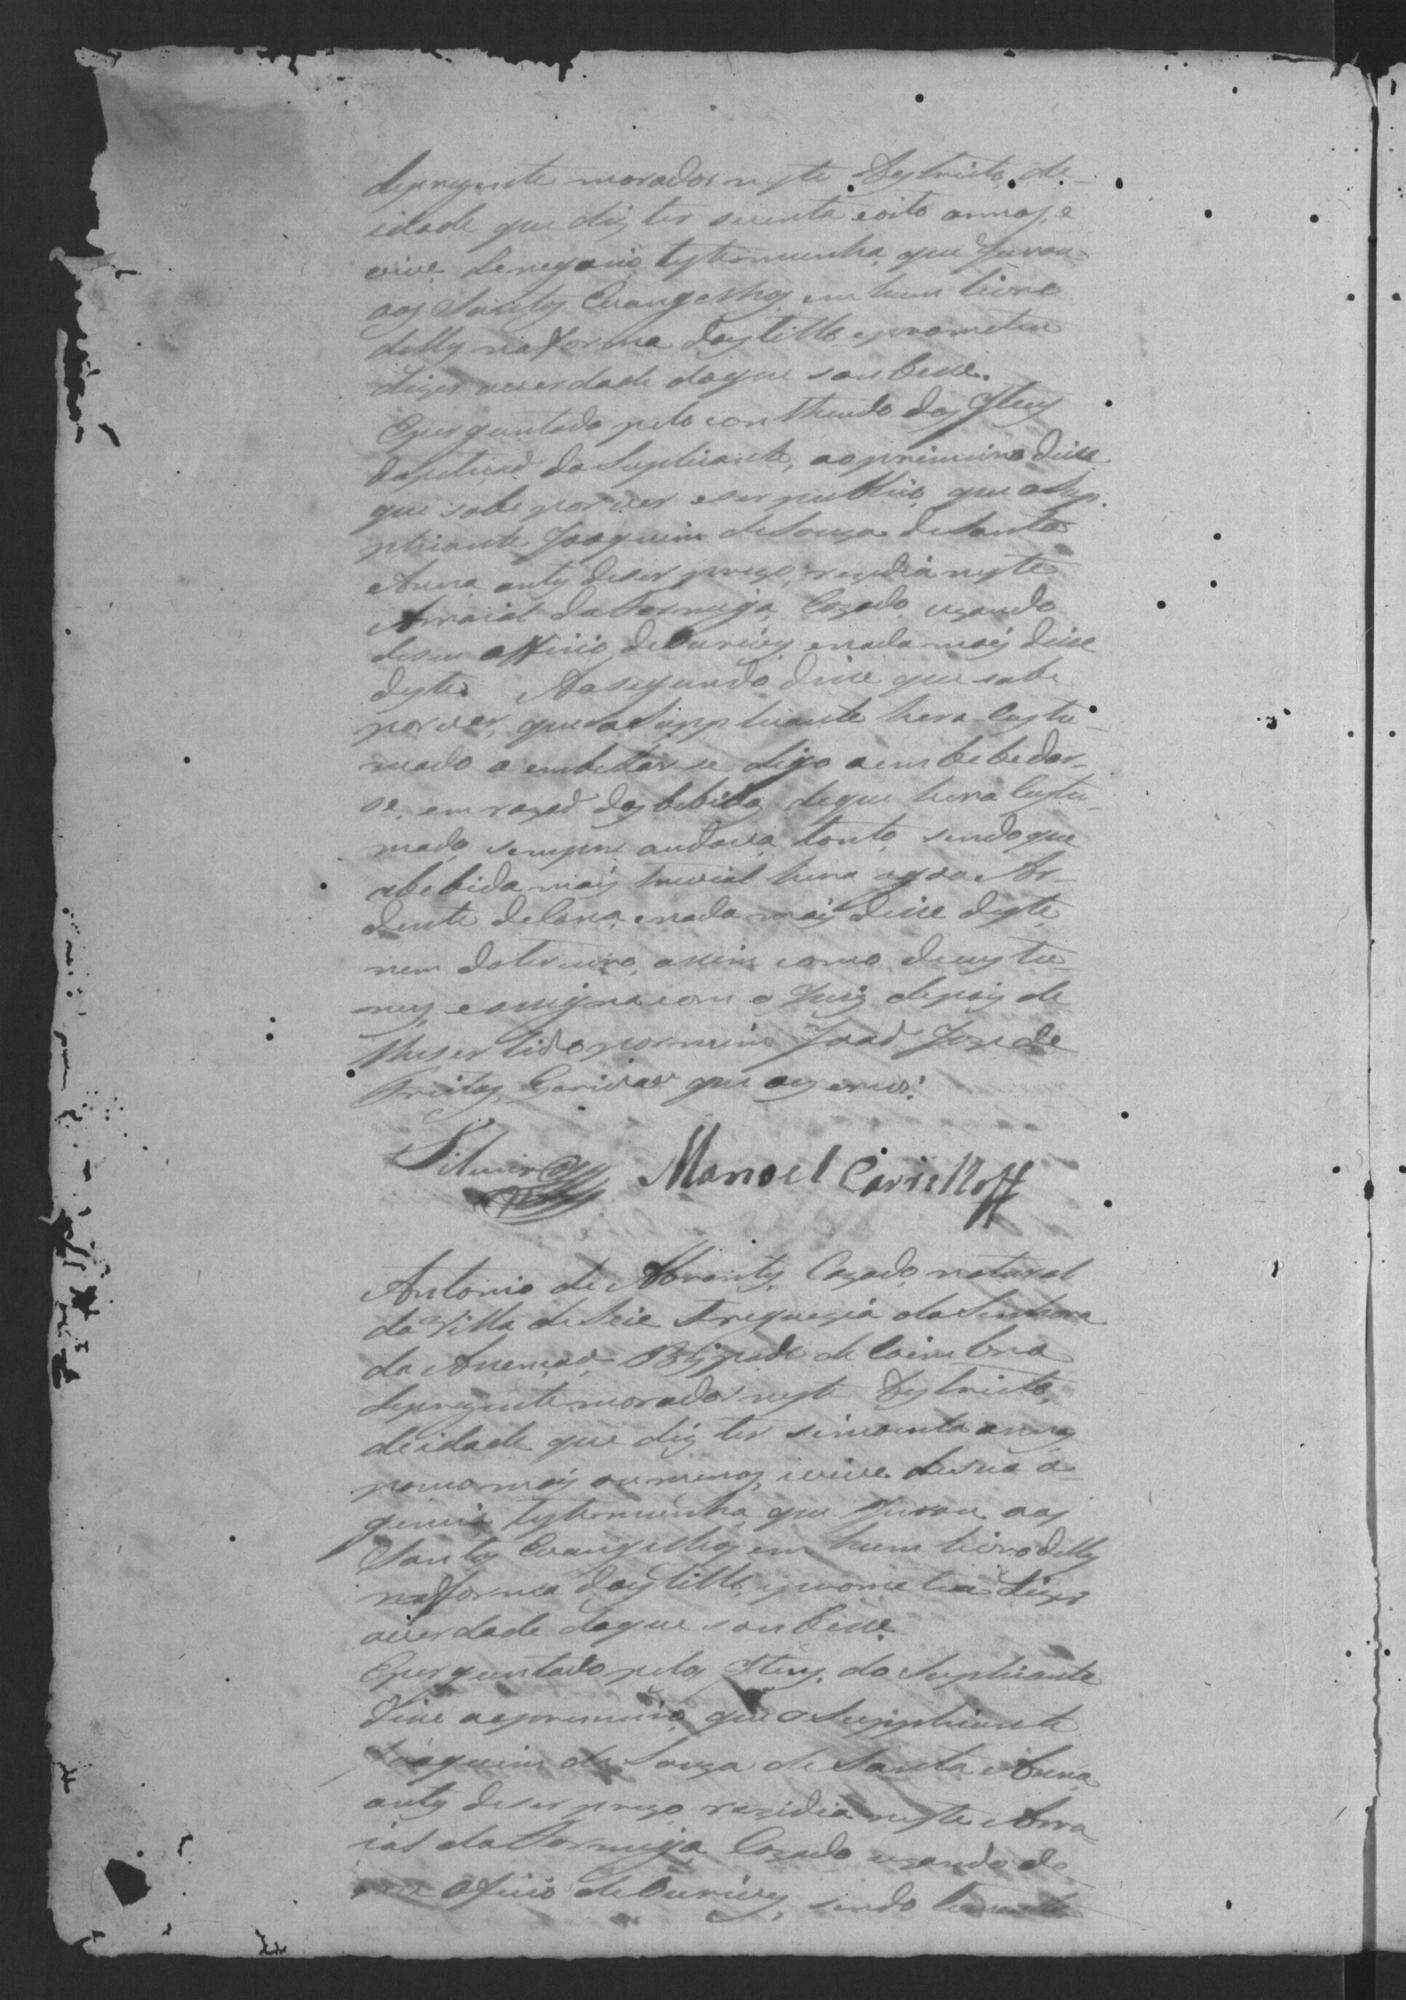 deprezente morador neste Destricto, de
idade que diz ter secenta eoito annos, e
vive denegocio, testemunha que Jurou
aos Santos Evangelhos em hum livro
delles na forma doestillo eprometeu
dizer averdade doque soubesse.
Eperguntado pelo conthendo dos Itens
dapetiçaõ do Suplicante, aoprimeiro disse
que sabe porver eser publico, que oSup-
plicante Joaquim deSouza deSanta
Anna antes deser prezo, rezidia neste
Arraial daFormiga, Cazado, uzando
deseu officio deOurives, enada mais disse
deste. Aosegundo disse que sabe
porver, que oSupplicante hera Costu-
mado a embebar se digo aembebedar-
se, em razaõ das bebidas deque hera Costu-
mado, sempre andava tonto, sendoque
abebida mais trevial hera agoa Ar-
dente deCana, enada mais disse deste,
nem doterceiro, assim como decustu-
mes, e assigna com o Juiz depois de
lheser lido por mim Joaõ Joze de
Freitas, Escrivaõ que oescrevi.
Silveira Manoel Carvalho
Antonio de Abrantes, Cazado, natural
da Villa deSeie Freguezia daSenhora
da Asençaõ, Bispado de Coimbra
deprezente morador neste Destricto,
deidade que diz ter sincoenta annos
poucomais oumenos, evive desua a-
gencia testemunha, que Jurou aos
Santos Evangelhos em hum livro delles
naforma doestillo, eprometeu dizer
averdade doque soubesse.
Eperguntado pelos Itens do Suplicante
disse aoprimeiro, que oSupplicante
Joaquim de Souza de Santa Anna,
antes deser prezo, rezidia neste Arra-
ial daFormiga, Cazado, uzando de
seu officio deOurives, sendo